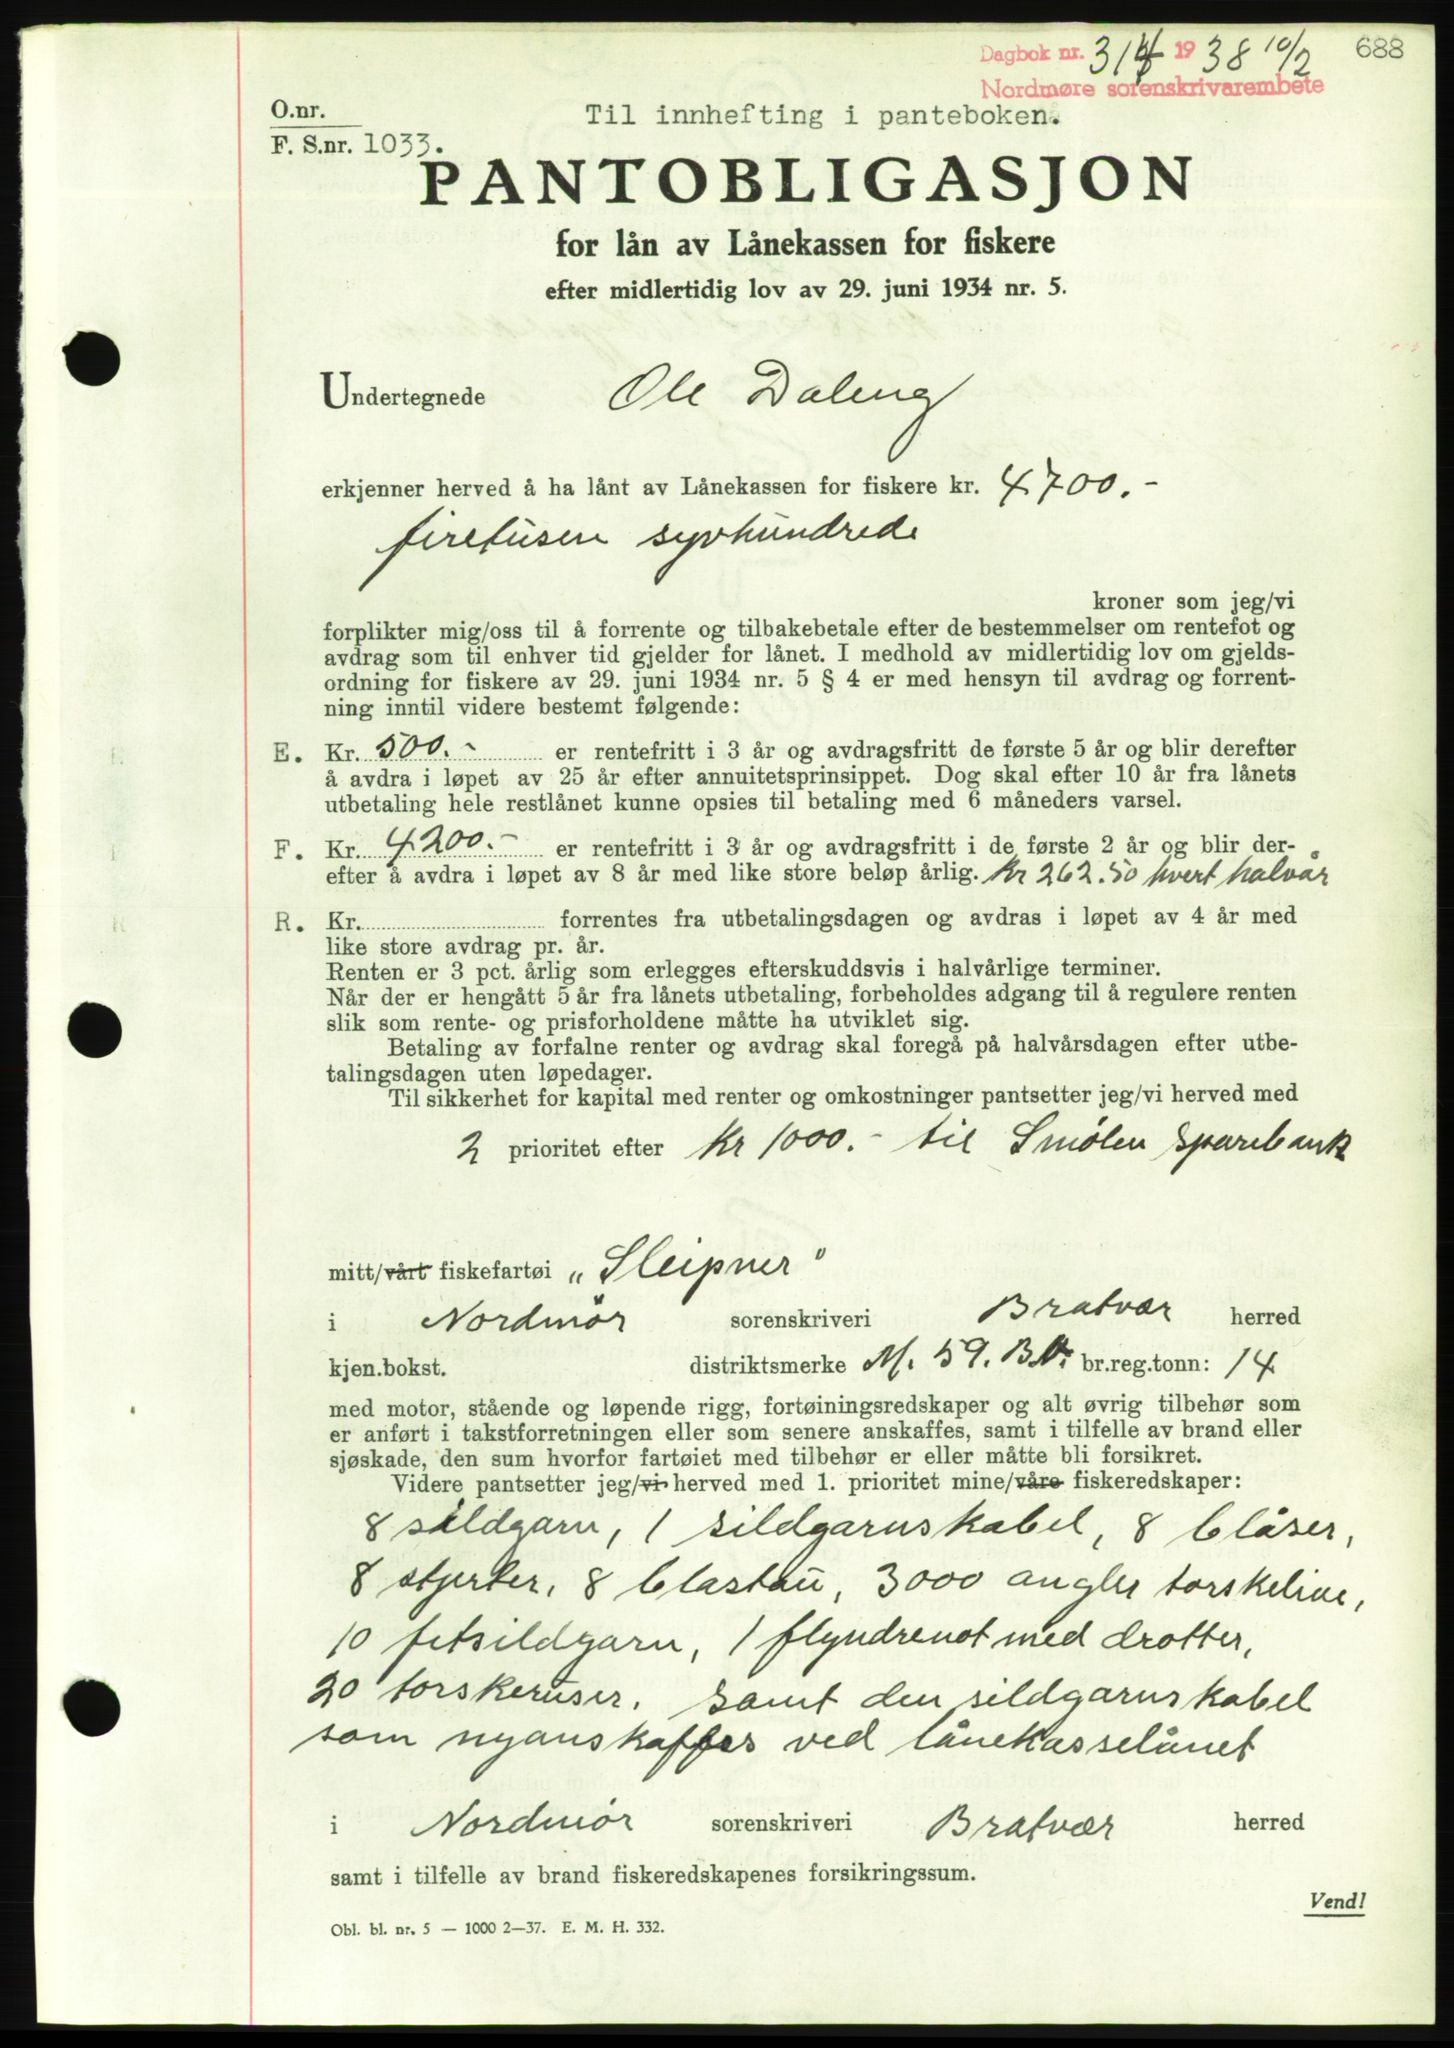 Dagbok nr. 314 1938 10/2 688
Nordmøre sorenskrivarembete
O.nr.
Til innhefting i panteboken.
F. S.nr. 1033.
PANTOBLIGASJON
for lån av Lånekassen for fiskere
efter midlertidig lov av 29. juni 1934 nr. 5.
Undertegnede Ole Daleng
erkjenner herved å ha lånt av Lånekassen for fiskere kr. 4700.-
firetusen syvhundrede
kroner som jeg/vi
forplikter mig/oss til å forrente og tilbakebetale efter de bestemmelser om rentefot og
avdrag som til enhver tid gjelder for lånet. I medhold av midlertidig lov om gjelds-
ordning for fiskere av 29. juni 1934 nr. 5 § 4 er med hensyn til avdrag og forrent-
ning inntil videre bestemt følgende:
E. Kr. 500.- er rentefritt i 3 år og avdragsfritt de første 5 år og blir derefter
å avdra i løpet av 25 år efter annuitetsprinsippet. Dog skal efter 10 år fra lånets
utbetaling hele restlånet kunne opsies til betaling med 6 måneders varsel.
F. Kr. 4200.- er rentefritt i 3 år og avdragsfritt i de første 2 år og blir der-
efter å avdra i løpet av 8 år med like store beløp årlig. Kr 262.50 hvert halvår
R. Kr. forrentes fra utbetalingsdagen og avdras i løpet av 4 år med
like store avdrag pr. år.
Renten er 3 pct. årlig som erlegges efterskuddsvis i halvårlige terminer.
Når der er hengått 5 år fra lånets utbetaling, forbeholdes adgang til å regulere renten
slik som rente- og prisforholdene måtte ha utviklet sig.
Betaling av forfalne renter og avdrag skal foregå på halvårsdagen efter utbe-
talingsdagen uten løpedager.
Til sikkerhet for kapital med renter og omkostninger pantsetter jeg/vi herved med
2 prioritet efter Kr 1000.- til Smølen sparebank
mitt/vårt fiskefartøi „Sleipner"
i Nordmør sorenskriveri Bratvær herred
kjen.bokst. distriktsmerke M. 59. BV. br.reg.tonn: 14
med motor, stående og løpende rigg, fortøiningsredskaper og alt øvrig tilbehør som
er anført i takstforretningen eller som senere anskaffes, samt i tilfelle av brand eller
sjøskade, den sum hvorfor fartøiet med tilbehør er eller måtte bli forsikret.
Videre pantsetter jeg/vi herved med 1. prioritet mine/våre fiskeredskaper:
8 sildgarn, 1 sildgarnskabel, 8 blåser,
8 stjerter, 8 blastau, 3000 angler torskeline,
10 fetsildgarn, 1 flyndrenot med drotter,
20 torskeruser. samt den sildgarnskabel
som nyanskaffes ved lånekasselånet
i Nordmør sorenskriveri Bratvær herred
samt i tilfelle av brand fiskeredskapenes forsikringssum.
Vend!
Obl. bl. nr. 5 — 1000 2—37. E. M. H. 332.